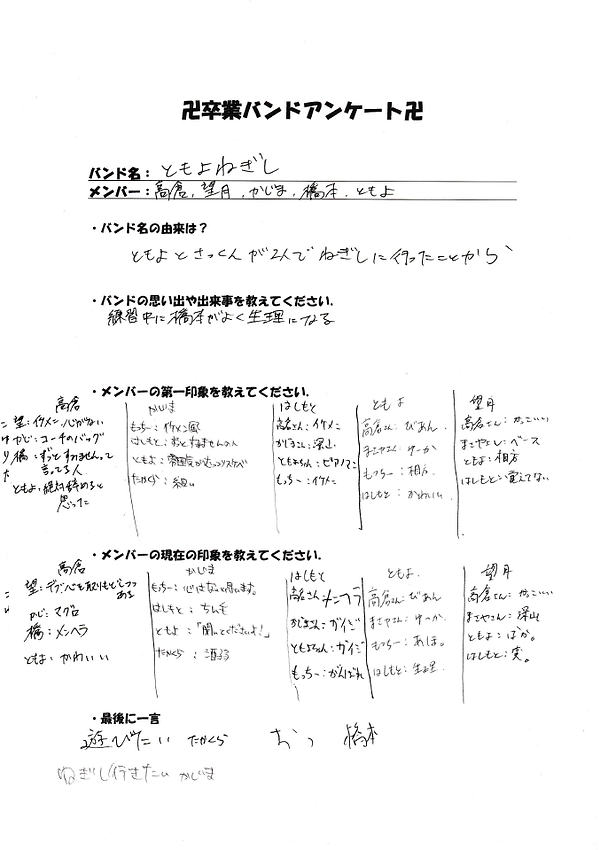 卍卒業バンドアンケート卍
バンド名： ともよねぎし
メンバー：高倉、望月、かじま、橋本、ともよ
・バンド名の由来は？
ともよとさっくんが2人でねぎしに行ったことから
・バンドの思い出や出来事を教えてください.
練習中に橋本がよく生理になる
・メンバーの第一印象を教えてください.
高倉
望：イケメン 心がない
かじ：コーチのバッグ
橋：ずっとすみませんって
言ってる人
ともよ：絶対辞めると
思った
かじま
もっちー：イケメン風
はしもと：ずっとすみませんの人
ともよ：雰囲気がむっつりスケベ
たかくら：細い
はしもと
高倉さん：イケメン
かじまさん：深山
ともよちゃん：ピアノマン
もっちー：イケメン
ともよ
高倉さん：びあん
まさやさん：ゆーか
もっちー：相方
はしもと：かわいい
望月
高倉さん：かっこいい
まさやさん：ベース
ともよ：相方
はしもと：覚えてない
・メンバーの現在の印象を教えてください.
高倉
望：デブ 心を取りもどしつつ
ある
かじ：マグロ
橋：メンヘラ
ともよ：かわいい
かじま
もっちー：心はないと思います。
はしもと：
ともよ：「聞いてくださいよ!」
たかくら：
はしもと
高倉さん：メンヘラ
かじまさん：ガイジ
ともよちゃん：ガイジ
もっちー：がんばれ
ともよ
高倉さん：びあん
まさやさん：ゆーか
もっちー：あほ。
はしもと：生理
望月
高倉さん：かっこいい
まさやさん：深山
ともよ：ばか。
はしもと：実。
・最後に一言
遊びたい たかくら おっ 橋本
ねぎし行きたい かじま